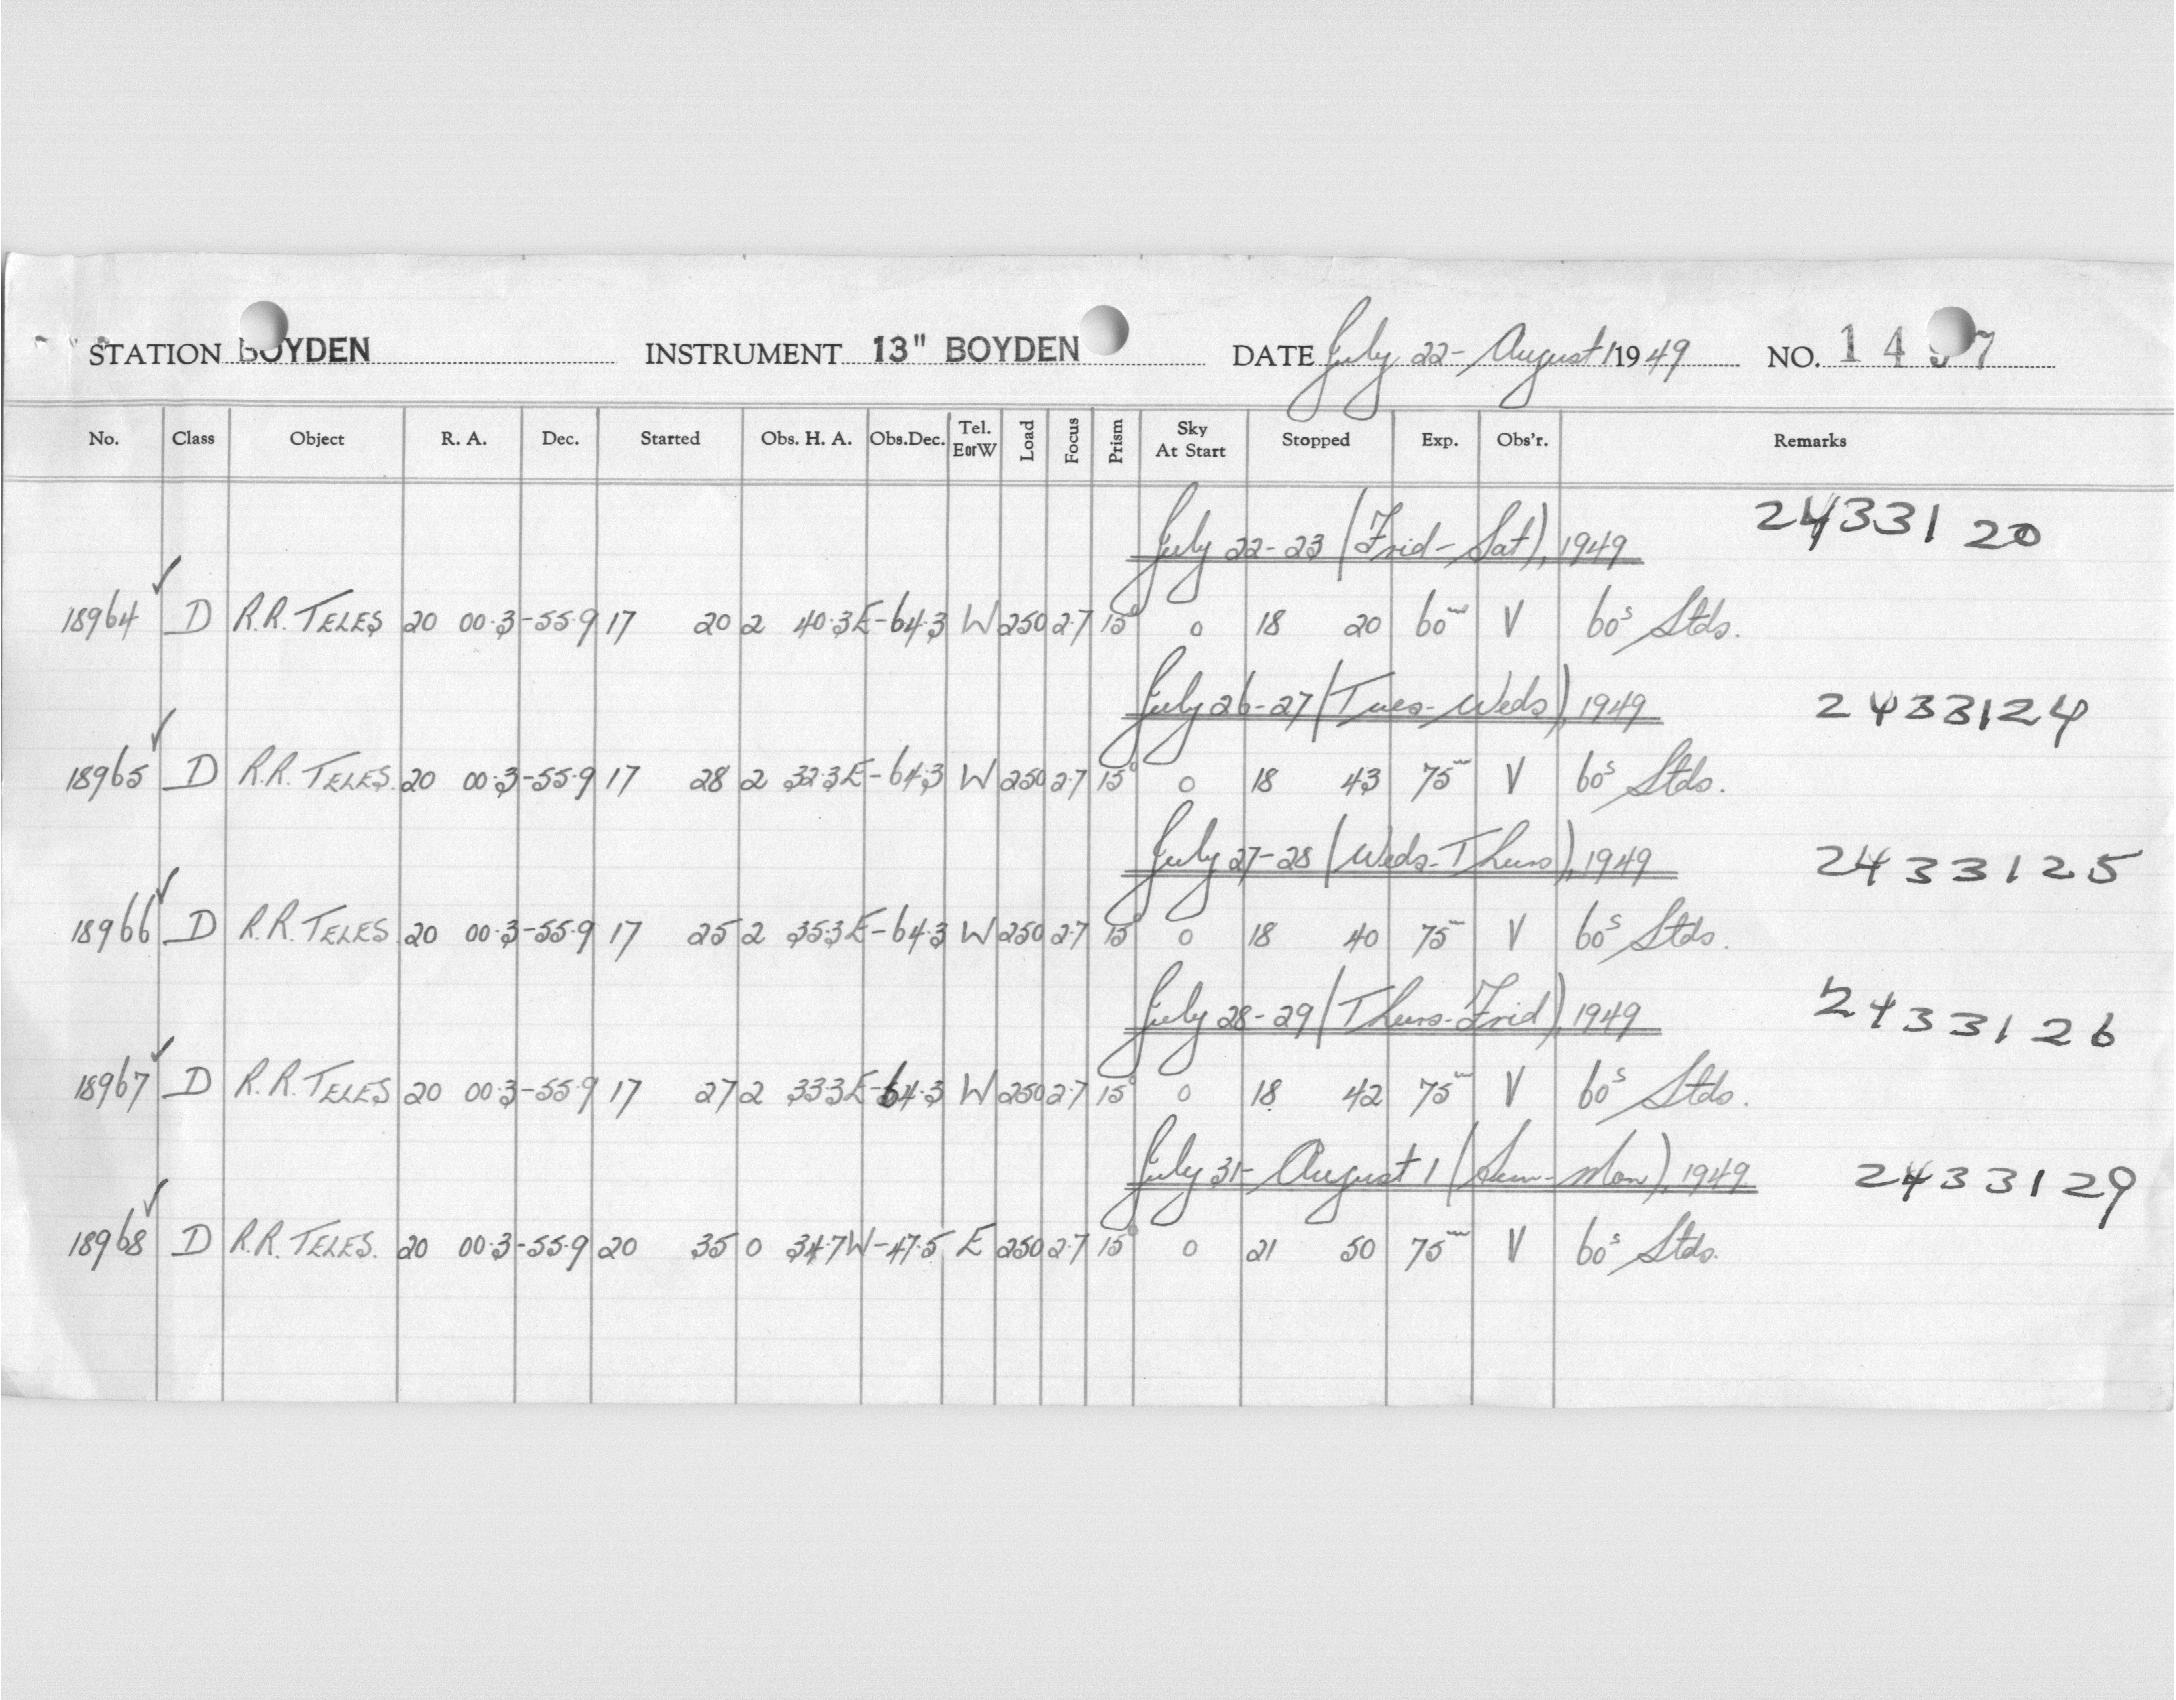 STATION BOYDEN INSTRUMENT 13" BOYDEN DATE July 22- August 1 1949 NO. 1497
No. Class Object R. A. Dec. Started Obs. H. A. Obs.Dec. Tel. EorW Load Focus Prism Sky At Start Stopped Exp. Obs'r. Remarks
July 22-23 (Frid-Sat), 1949 2433120
18964 ✓ D R.R. TELES 20 00.3 -55.9 17 20 2 40.3E -64.3 W 250 2.7 15° 0 18 20 60m V 60s Stds.
July 26-27 (Tues-Weds), 1949 2433124
18965 ✓ D R.R. TELES. 20 00.3 -55.9 17 28 2 32.3E -64.3 W 250 2.7 15° 0 18 43 75m V 60s Stds.
July 27-28 (Weds-Thurs), 1949 2433125
18966 ✓ D R.R. TELES. 20 00.3 -55.9 17 25 2 35.3E -64.3 W 250 2.7 15° 0 18 40 75m V 60s Stds.
July 28-29 (Thurs-Frid), 1949 2433126
18967 ✓ D R.R. TELES 20 00.3 -55.9 17 27 2 33.3E -64.3 W 250 2.7 15° 0 18 42 75m V 60s Stds.
July 31- August 1 (Sun-Mon), 1949 2433129
18968 ✓ D R.R. TELES. 20 00.3 -55.9 20 35 0 34.7W -47.5 E 250 2.7 15° 0 21 50 75m V 60s Stds.